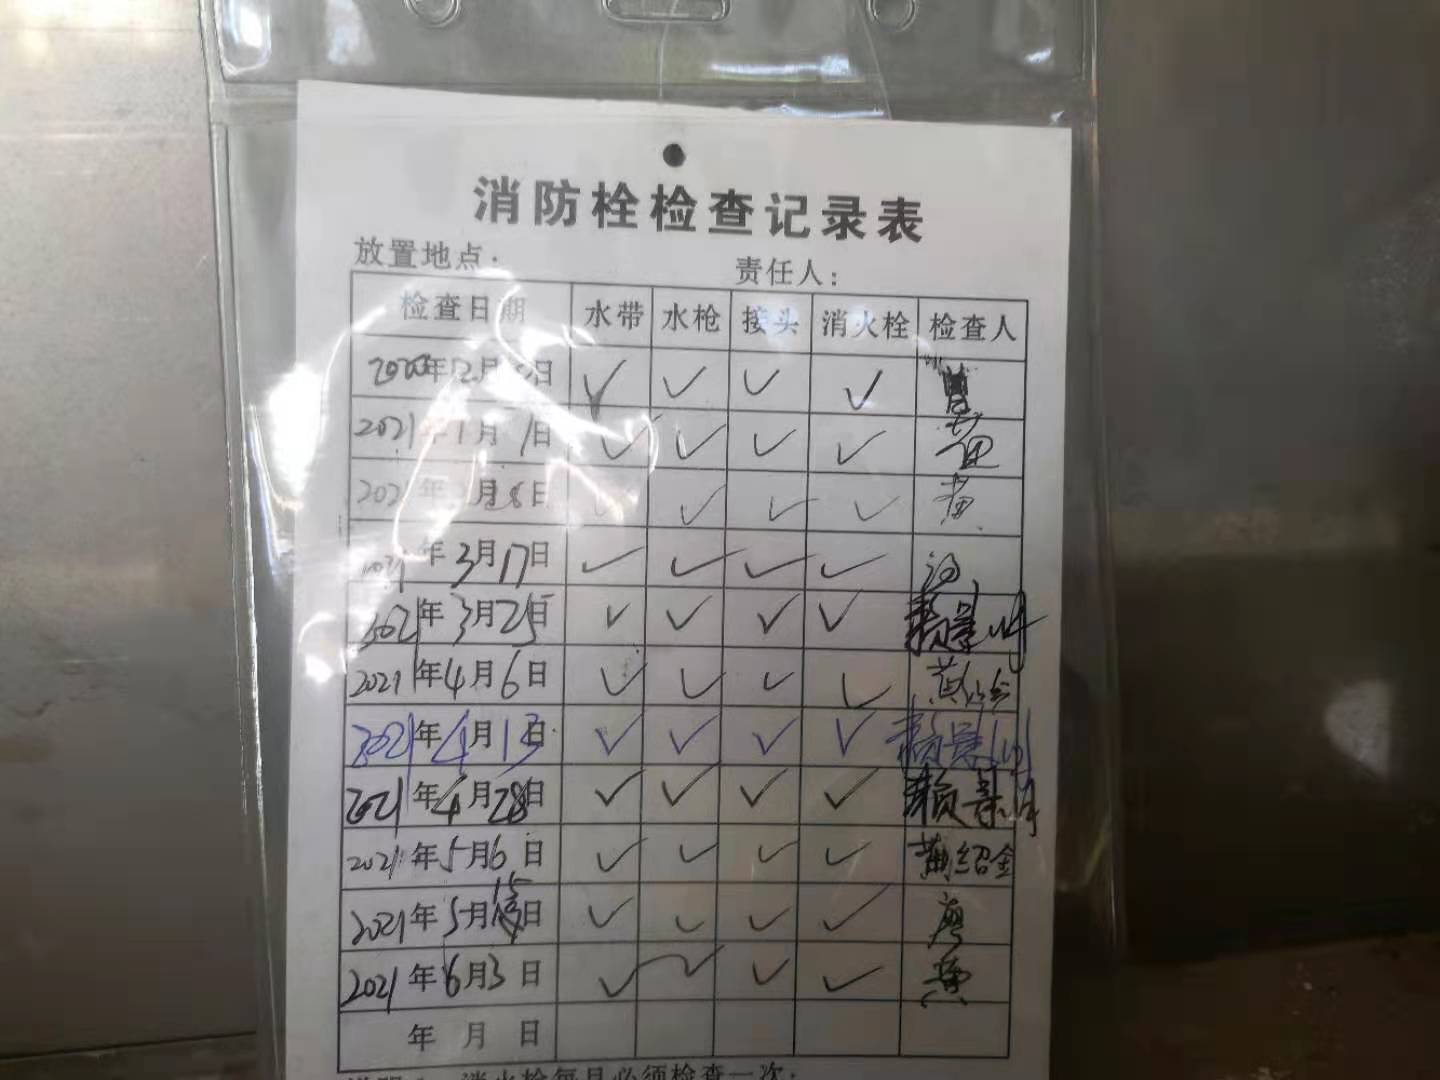 消防栓检查记录表
放置地点： 责任人：
检查日期 水带 水枪 接头 消火栓 检查人
2020年12月 日 ✓ ✓ ✓ ✓
2021年1月1日 ✓ ✓ ✓ ✓
2021年2月8日 ✓ ✓ ✓ ✓ 黄
2021年3月17日 ✓ ✓ ✓ ✓
2021年3月25日 ✓ ✓ ✓ ✓
2021年4月6日 ✓ ✓ ✓ ✓ 黄绍金
2021年4月13日 ✓ ✓ ✓ ✓
2021年4月28日 ✓ ✓ ✓ ✓
2021年5月6日 ✓ ✓ ✓ ✓ 黄绍金
2021年5月15日 ✓ ✓ ✓ ✓ 廖
2021年6月3日 ✓ ✓ ✓ ✓ 黄
年 月 日
消火栓每月必须检查一次；